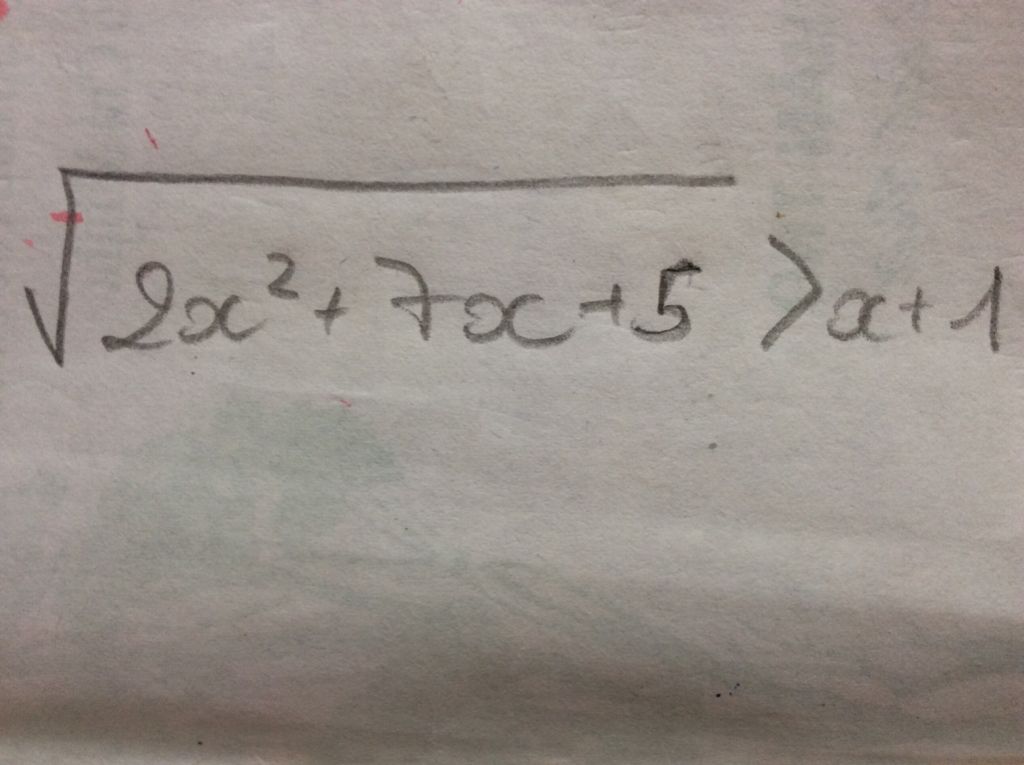 √(2x² + 7x + 5) > x + 1